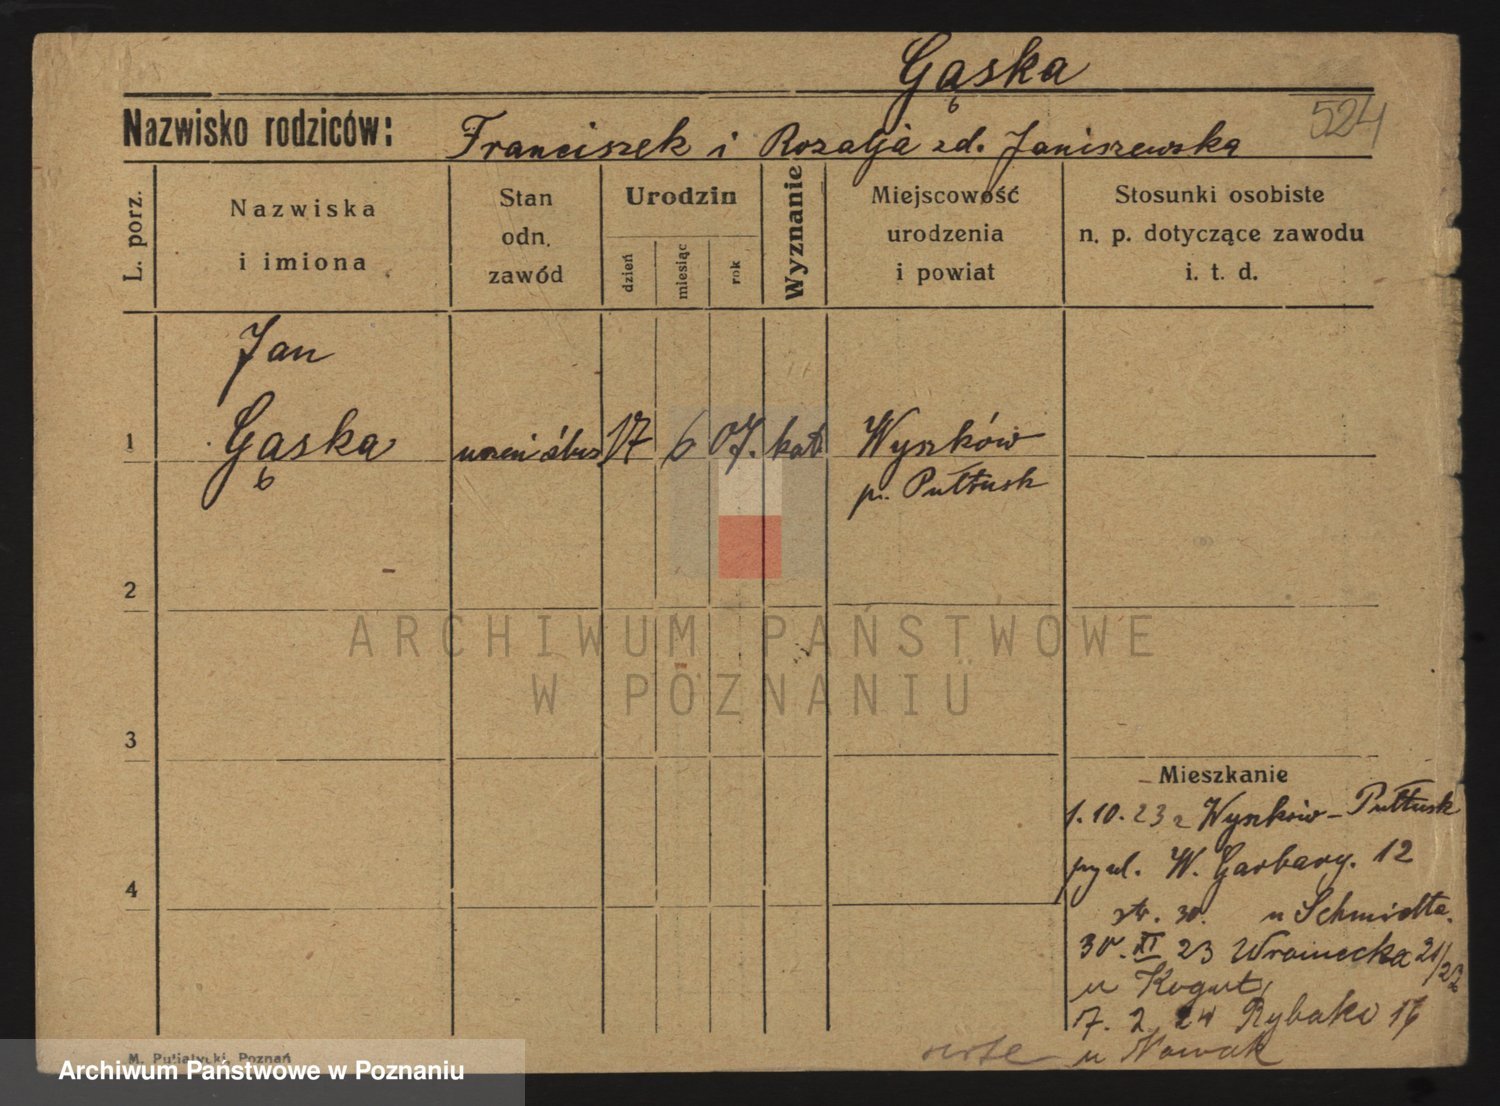 Gąska
524
Nazwisko rodziców: Franciszek i Rozalja zd. Janiszewska
L. porz.
Nazwiska i imiona
Stan odn. zawód
Urodzin
dzień
miesiąc
rok
Wyznanie
Miejscowość urodzenia i powiat
Stosunki osobiste n. p. dotyczące zawodu i. t. d.
Jan
1 Gąska uczeń 17 6 07. kat. Wyszków
p. Pułtusk
2
ARCHIWUM PAŃSTWOWE
W POZNANIU
3
Mieszkanie
1. 10. 23 z Wyszków – Pułtusk
W. Garbary. 12
4
u Schmidta.
30. XI 23 Wroniecka 21/22
u Kogut
17. 2 24 Rybaki 17
u Nowak
M. Putiatycki, Poznań
Archiwum Państwowe w Poznaniu